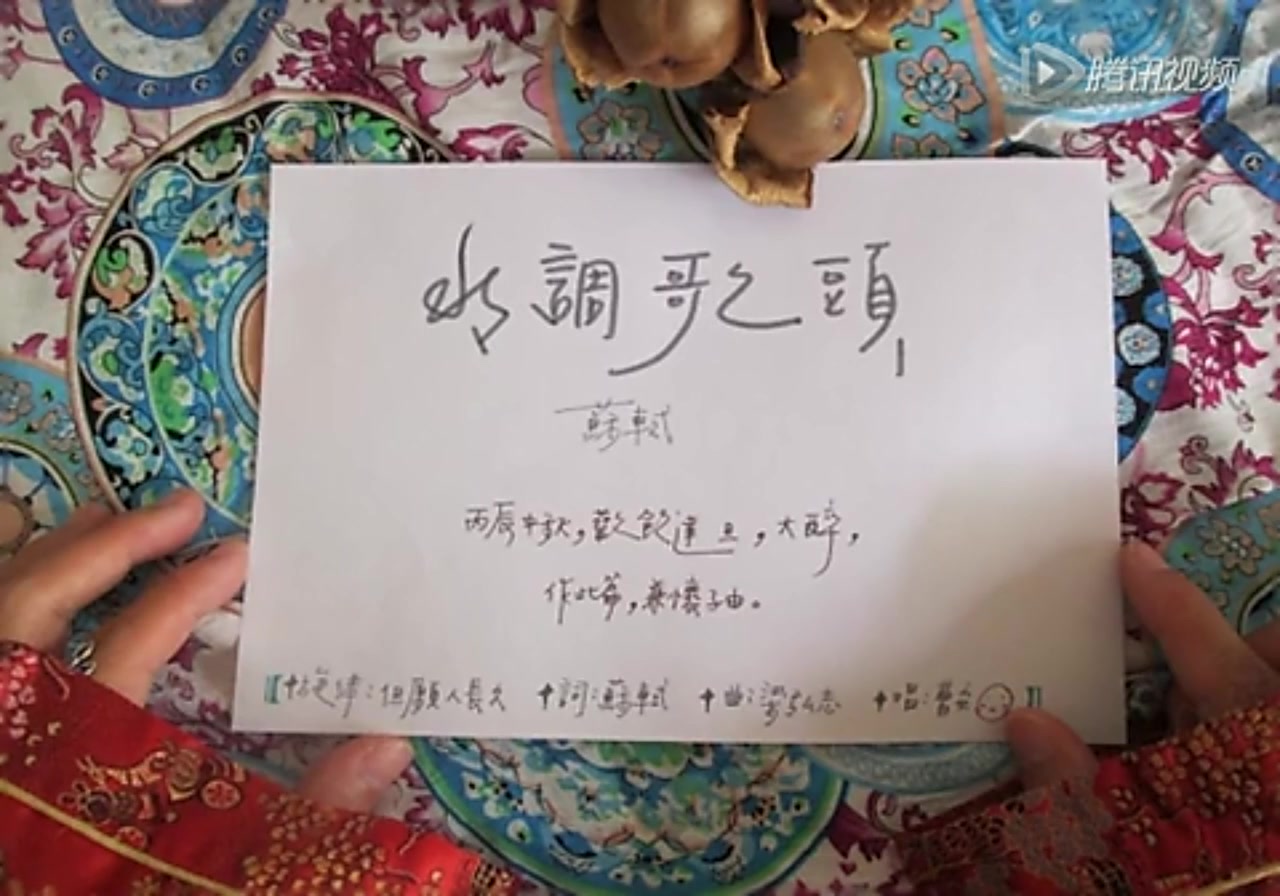 腾讯视频
水調歌頭
蘇軾
丙辰中秋,歡飲達旦,大醉,
作此篇,兼懷子由。
【↑旋律:但願人長久 ↑詞:蘇軾 ↑曲:梁弘志 ↑唱:蔡